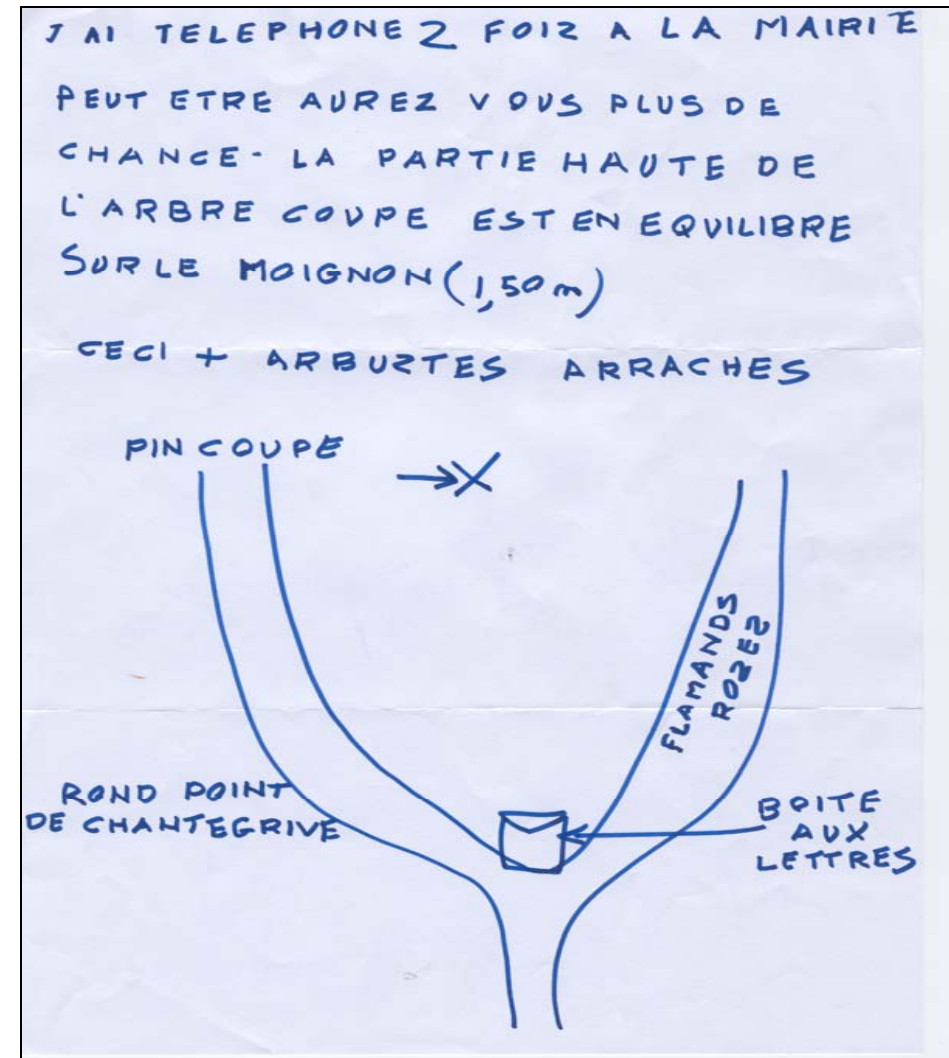 J AI TELEPHONE 2 FOIS A LA MAIRIE
PEUT ETRE AUREZ VOUS PLUS DE
CHANCE - LA PARTIE HAUTE DE
L'ARBRE COUPE EST EN EQUILIBRE
SUR LE MOIGNON (1,50 m)
CECI + ARBUSTES ARRACHES
PIN COUPE
FLAMANDS
ROSES
ROND POINT
DE CHANTEGRIVE
BOITE
AUX
LETTRES